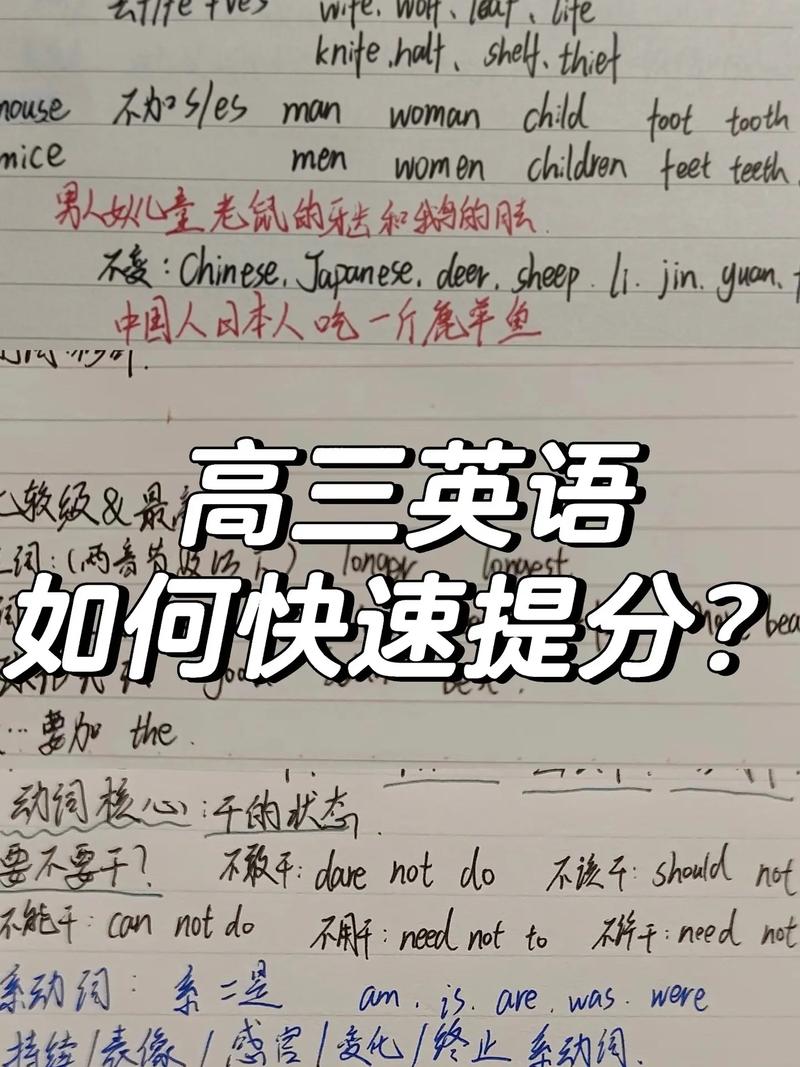 去f/fe+ves wife、wolf、leaf、life
knife、half、shelf、thief
mouse 不加s/es man woman child foot tooth
mice men women children feet teeth.
男人女人儿童老鼠的牙齿和我的脚.
不变:Chinese、Japanese、deer、sheep、li、jin、yuan、
中国人日本人吃一斤鹿羊鱼
高三英语
比较级&最高
词:(两音节及以下) longer longest
如何快速提分?
more bea
good best.
…要加 the.
动词核心:干的状态.
要不要干? 不敢干:dare not do 不该干:should not
不能干:can not do 不用干:need not to 不许干:need not
系动词: 系=是 am、is、are、was、were
持续/表像/感官/变化/终止 系动词.